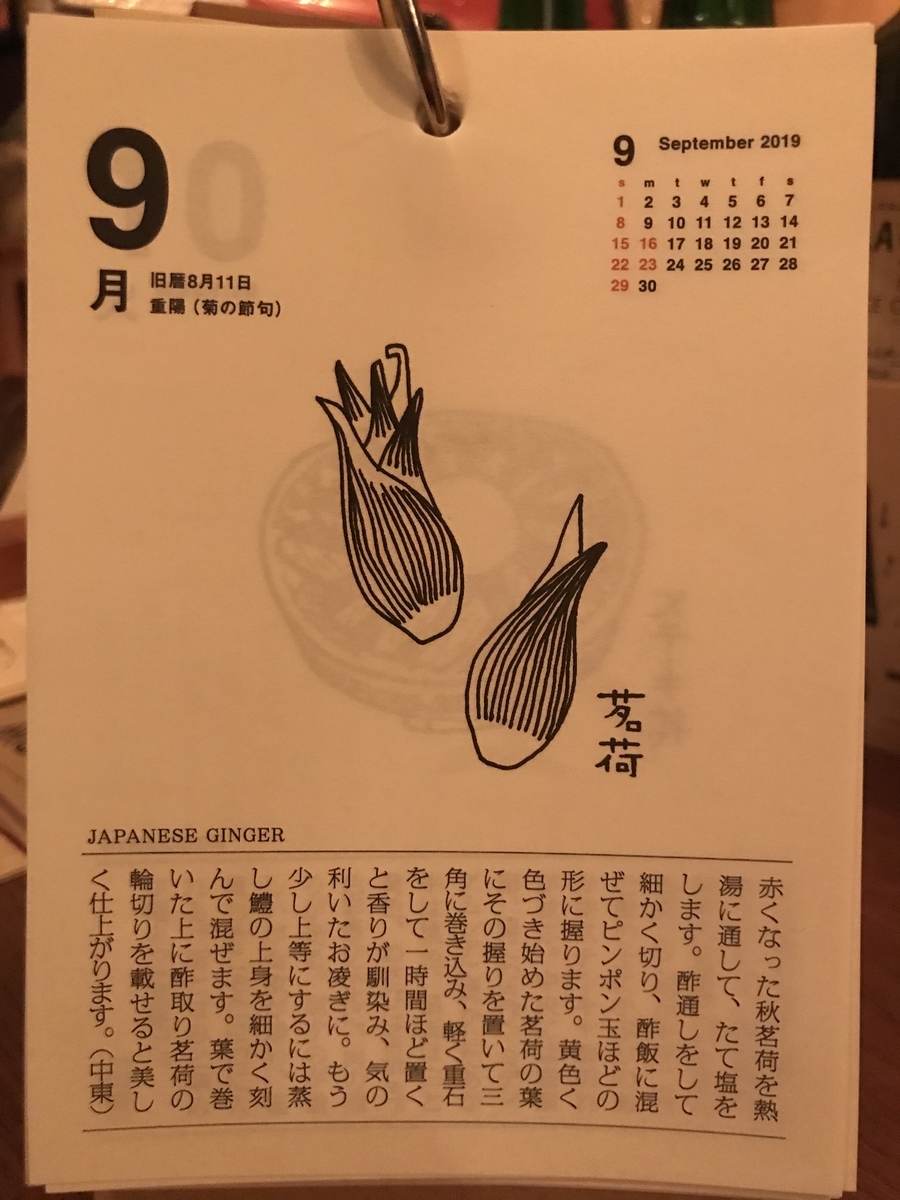 9
月
旧暦8月11日
重陽(菊の節句)
9 September 2019
s m t w t f s
1 2 3 4 5 6 7
8 9 10 11 12 13 14
15 16 17 18 19 20 21
22 23 24 25 26 27 28
29 30
茗荷
JAPANESE GINGER
赤くなった秋茗荷を熱
湯に通して、たて塩を
します。酢通しをして
細かく切り、酢飯に混
ぜてピンポン玉ほどの
形に握ります。黄色く
色づき始めた茗荷の葉
にその握りを置いて三
角に巻き込み、軽く重石
をして一時間ほど置く
と香りが馴染み、気の
利いたお凌ぎに。もう
少し上等にするには蒸
し鱧の上身を細かく刻
んで混ぜます。葉で巻
いた上に酢取り茗荷の
輪切りを載せると美し
く仕上がります。(中東)